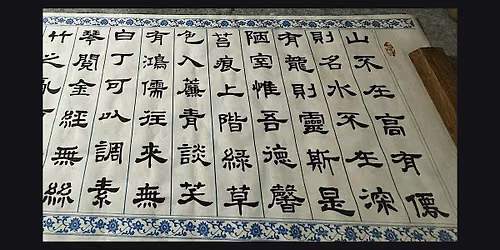 山不在高有僊
則名水不在深
有龍則靈斯是
陋室惟吾德馨
苔痕上階綠草
色入簾青談笑
有鴻儒往來無
白丁可以調素
琴閱金經無絲
竹之亂